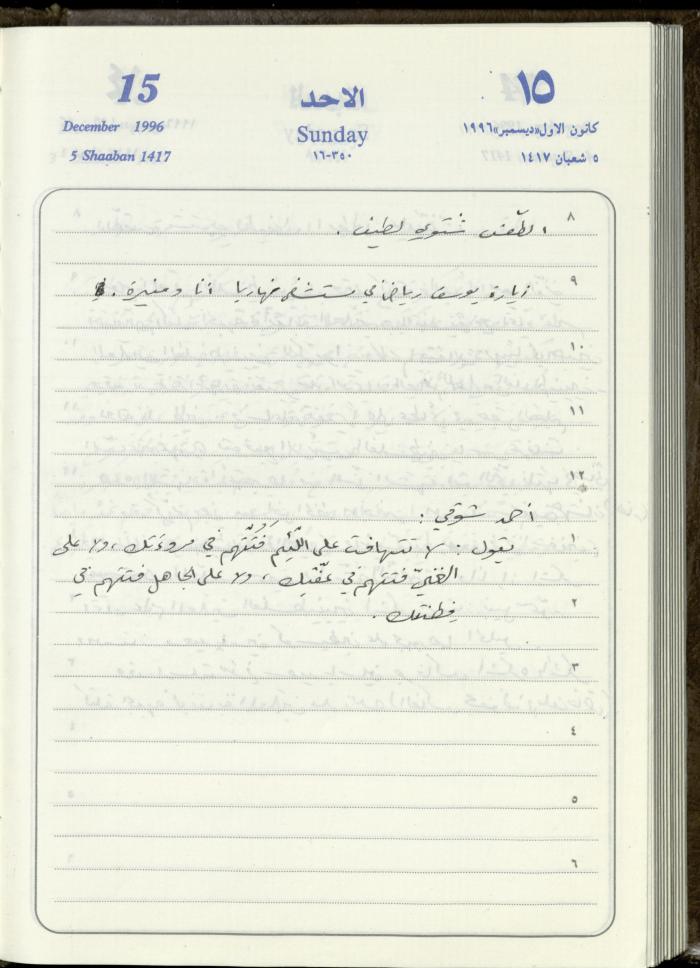 15
الاحد
١٥
December 1996
Sunday
كانون الاول «ديسمبر» ١٩٩٦
5 Shaaban 1417
٣٥٠-١٦
٥ شعبان ١٤١٧
٨
الطقس شتوي لطيف .
٩
زيارة يوسف رياض في مستشفى نهاريا أنا ومنيرة .
١٠
١١
١٢
أحمد شوقي :
١
يقول : لا تتهافت على اللّئيم فَتُتَّهم في مروءتك ، ولا على
الغنيّ فتتهم في عفّتِك ، ولا على الجاهل فتتهم في
٢
فِطنتك .
٣
٤
٥
٦